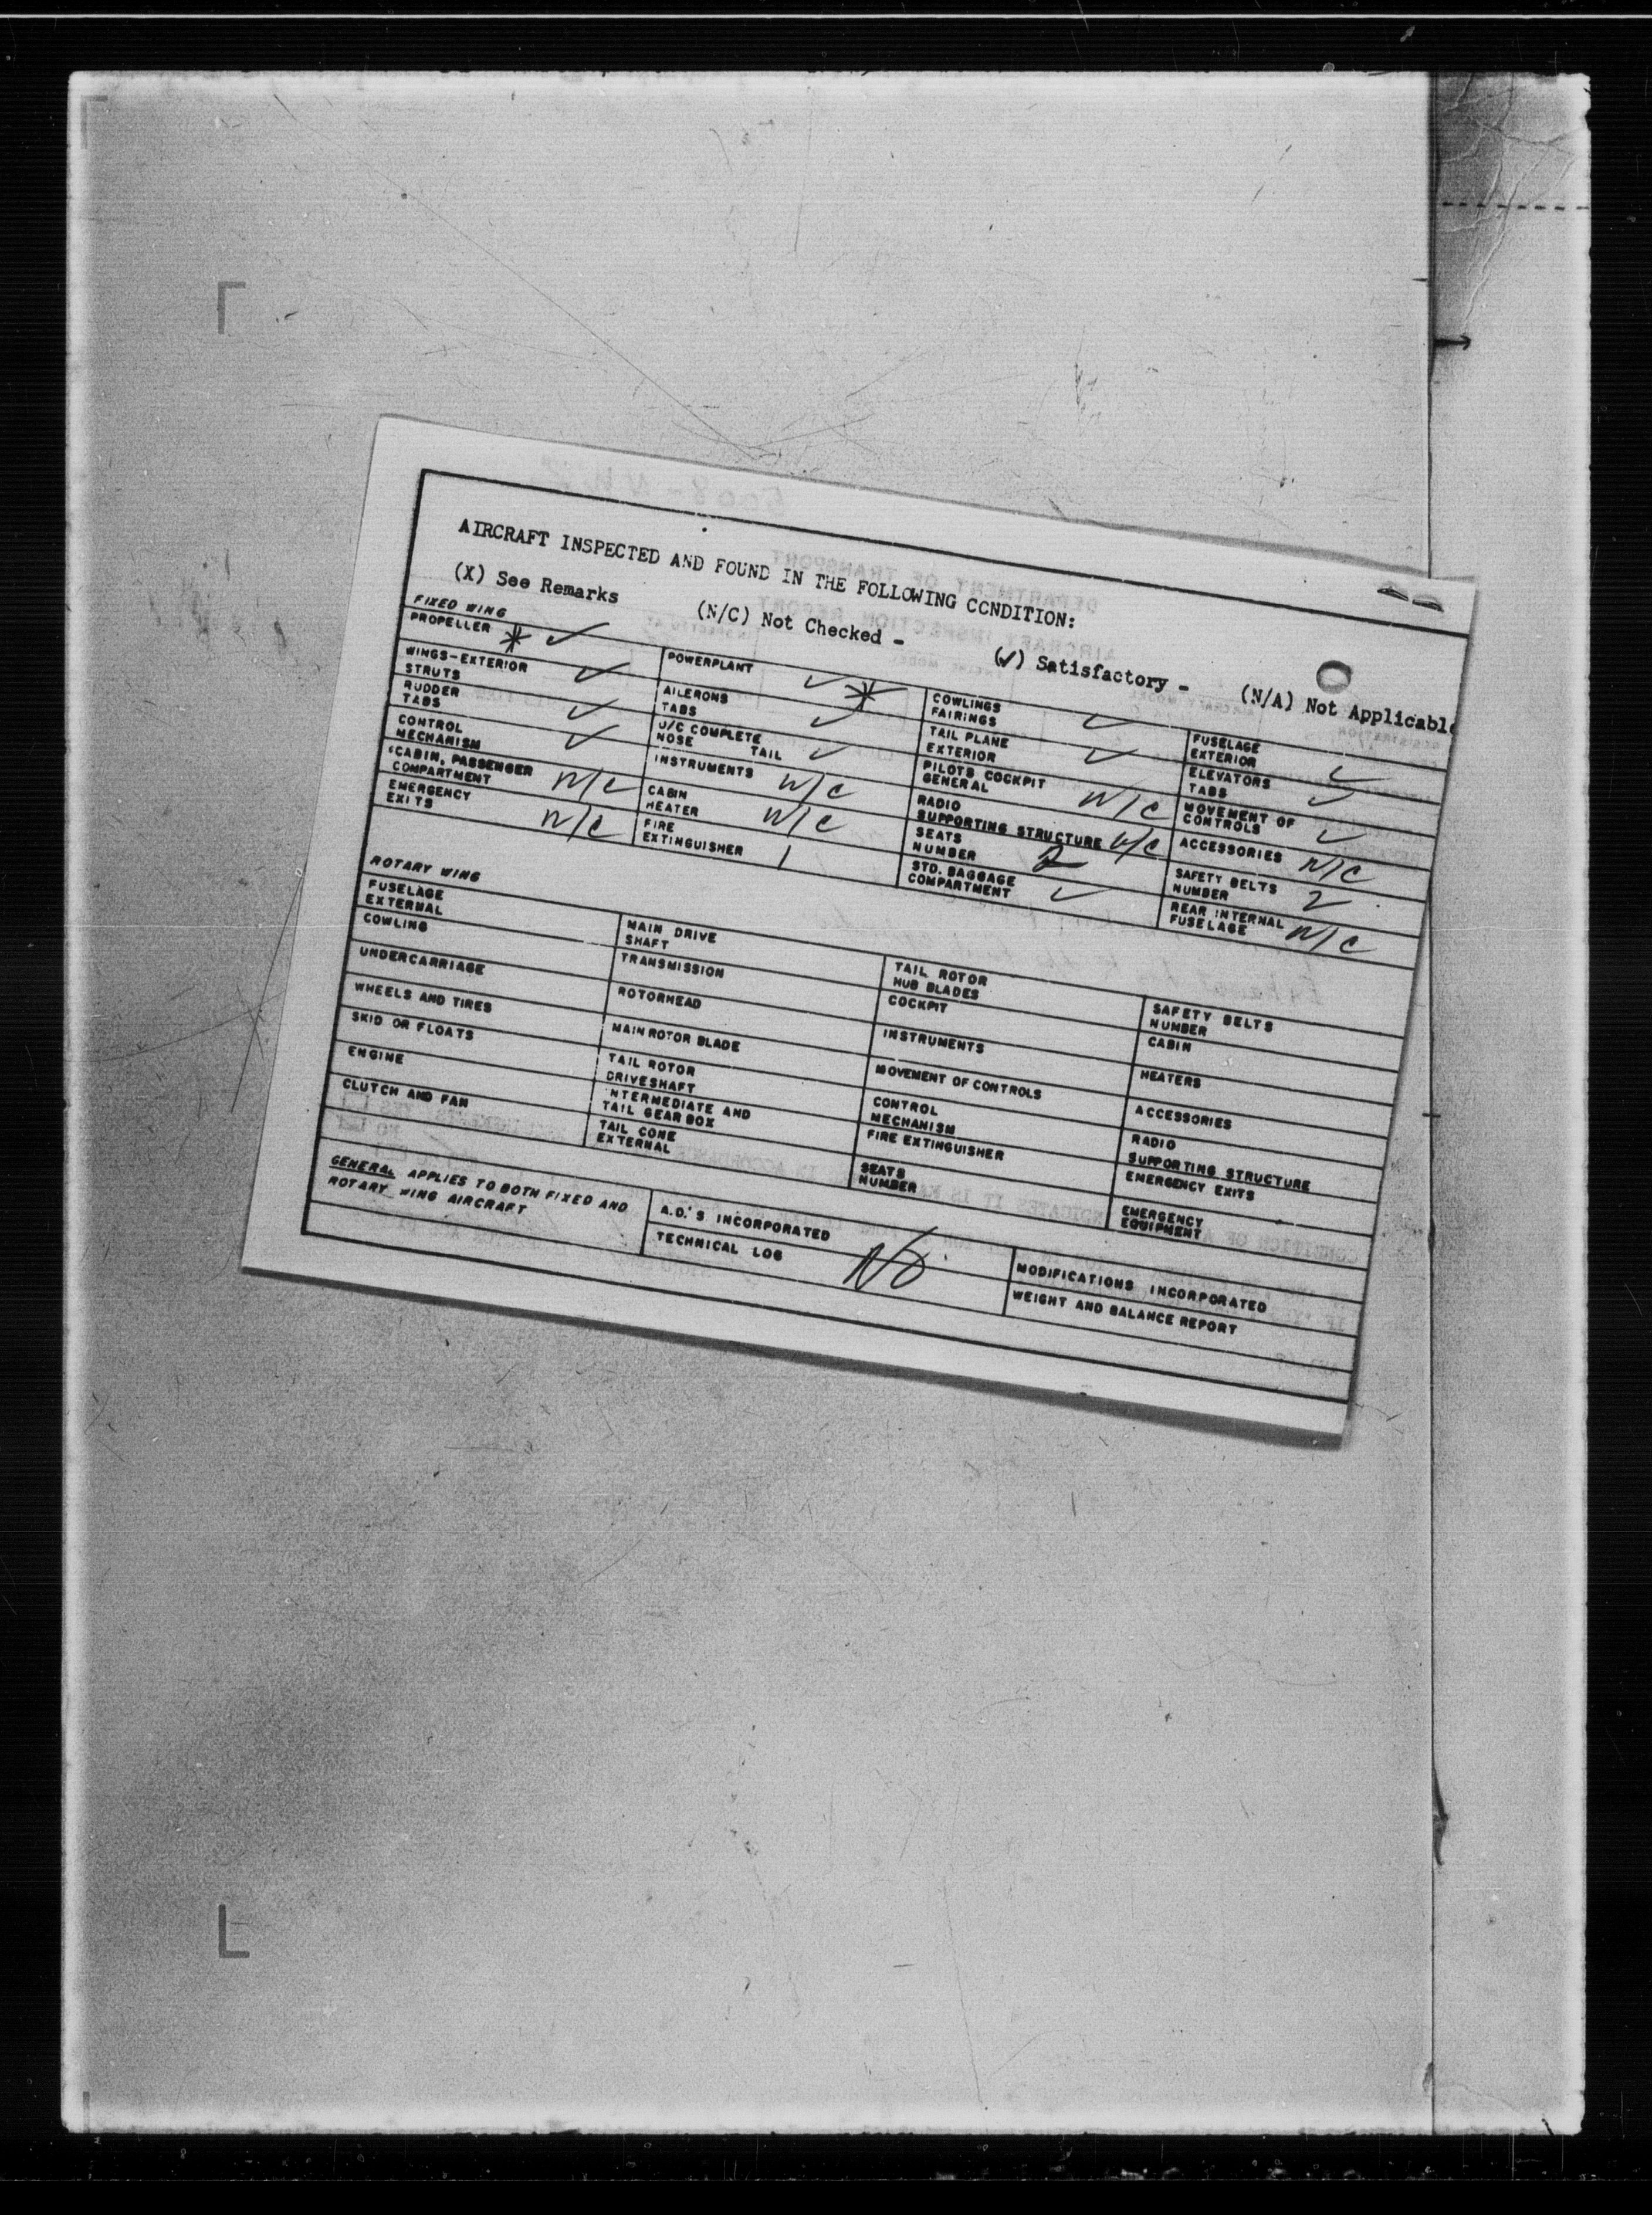 AIRCRAFT INSPECTED AND FOUND IN THE FOLLOWING CONDITION:
(X) See Remarks (N/C) Not Checked - (✓) Satisfactory - (N/A) Not Applicable
FIXED WING
PROPELLER * ✓ POWERPLANT ✓ * COWLINGS FAIRINGS ✓ FUSELAGE EXTERIOR ✓
WINGS-EXTERIOR STRUTS ✓ AILERONS TABS ✓ TAIL PLANE EXTERIOR ✓ ELEVATORS TABS ✓
RUDDER TABS ✓ U/C COMPLETE NOSE TAIL ✓ PILOTS COCKPIT GENERAL N/C MOVEMENT OF CONTROLS ✓
CONTROL MECHANISM ✓ INSTRUMENTS N/C RADIO SUPPORTING STRUCTURE N/C ACCESSORIES N/C
CABIN, PASSENGER COMPARTMENT N/C CABIN HEATER N/C SEATS NUMBER 2 SAFETY BELTS NUMBER 2
EMERGENCY EXITS N/C FIRE EXTINGUISHER 1 STD. BAGGAGE COMPARTMENT ✓ REAR INTERNAL FUSELAGE N/C
ROTARY WING
FUSELAGE EXTERNAL MAIN DRIVE SHAFT TAIL ROTOR HUB BLADES SAFETY BELTS NUMBER
COWLING TRANSMISSION COCKPIT CABIN
UNDERCARRIAGE ROTORHEAD INSTRUMENTS HEATERS
WHEELS AND TIRES MAIN ROTOR BLADE MOVEMENT OF CONTROLS ACCESSORIES
SKID OR FLOATS TAIL ROTOR DRIVESHAFT CONTROL MECHANISM RADIO SUPPORTING STRUCTURE
ENGINE INTERMEDIATE AND TAIL GEAR BOX FIRE EXTINGUISHER EMERGENCY EXITS
CLUTCH AND FAN TAIL CONE EXTERNAL SEATS NUMBER EMERGENCY EQUIPMENT
GENERAL APPLIES TO BOTH FIXED AND ROTARY WING AIRCRAFT
A.D.'S INCORPORATED MODIFICATIONS INCORPORATED
TECHNICAL LOG No WEIGHT AND BALANCE REPORT